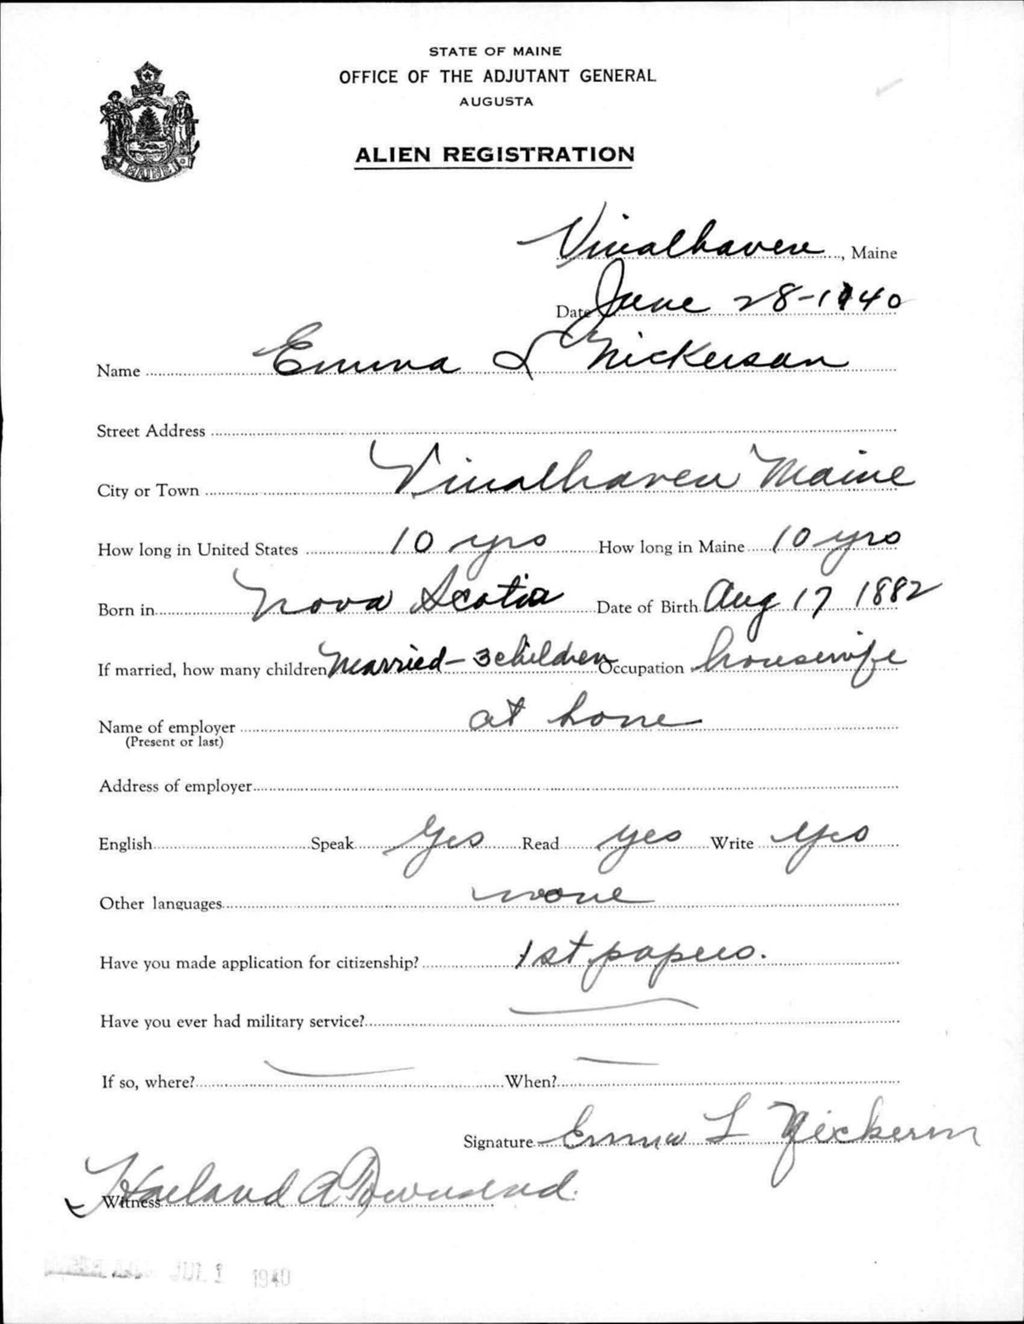 STATE OF MAINE
OFFICE OF THE ADJUTANT GENERAL
AUGUSTA
ALIEN REGISTRATION
MAINE
Vinalhaven, Maine
Date June 28-1940
Name Emma L Nickerson
Street Address
City or Town Vinalhaven Maine
How long in United States 10 yrs How long in Maine 10 yrs
Born in Nova Scotia Date of Birth Aug 17 1882
If married, how many children Married - 3 children Occupation housewife
Name of employer at home
(Present or last)
Address of employer
English Speak Yes Read yes Write yes
Other languages none
Have you made application for citizenship? 1st papers.
Have you ever had military service?
If so, where? When?
Signature Emma L Nickerson
Witness A Townsend.
JUL 1 1940